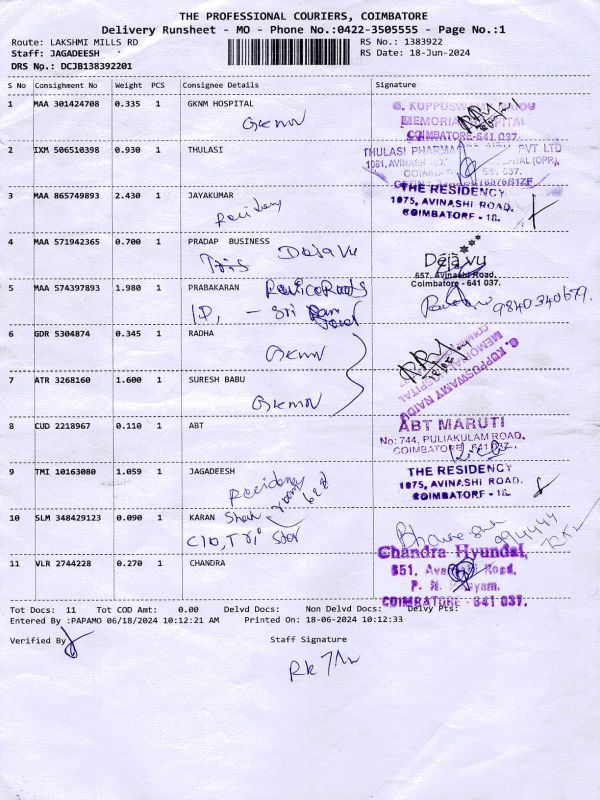 THE PROFESSIONAL COURIERS, COIMBATORE
Delivery Runsheet - MO - Phone No.:0422-3505555 - Page No.:1
Route: LAKSHMI MILLS RD
RS No.: 1383922
Staff: JAGADEESH
RS Date: 18-Jun-2024
DRS No.: DCJB138392201
S No Consignment No Weight PCS Consignee Details Signature
1 MAA 301424708 0.335 1 GKNM HOSPITAL
G. KUPPUSWAMY NAIDU
MEMORIAL HOSPITAL
COIMBATORE-641 037.
2 IXM 506510398 0.930 1 THULASI
THULASI PHARMA PVT LTD
1081, AVINASHI (OPP.)
3 MAA 865749893 2.430 1 JAYAKUMAR
Residency
THE RESIDENCY
1075, AVINASHI ROAD,
COIMBATORE - 18.
4 MAA 571942365 0.700 1 PRADAP BUSINESS
Deja Vu
Déjà vu
657, Avinashi Road,
Coimbatore - 641 037.
5 MAA 574397893 1.980 1 PRABAKARAN
10, - Sri
6 GDR 5304874 0.345 1 RADHA
GKNM
G. KUPPUSWAMY NAIDU
MEMORIAL HOSPITAL
7 ATR 3268160 1.600 1 SURESH BABU
GKNM
8 CUD 2218967 0.110 1 ABT
ABT MARUTI
No: 744, PULIAKULAM ROAD,
COIMBATORE - 641 037.
9 TMI 10163080 1.059 1 JAGADEESH
Residency
room
THE RESIDENCY
1075, AVINASHI ROAD,
COIMBATORE - 18.
10 SLM 348429123 0.090 1 KARAN
Shah
C/O, Tri Star
11 VLR 2744228 0.270 1 CHANDRA
Chandra Hyundai,
851, Avanashi Road,
COIMBATORE - 641 037.
Tot Docs: 11 Tot COD Amt: 0.00 Delvd Docs: Non Delvd Docs: Delvy Pts:
Entered By :PAPAMO 06/18/2024 10:12:21 AM Printed On: 18-06-2024 10:12:33
Verified By
Staff Signature